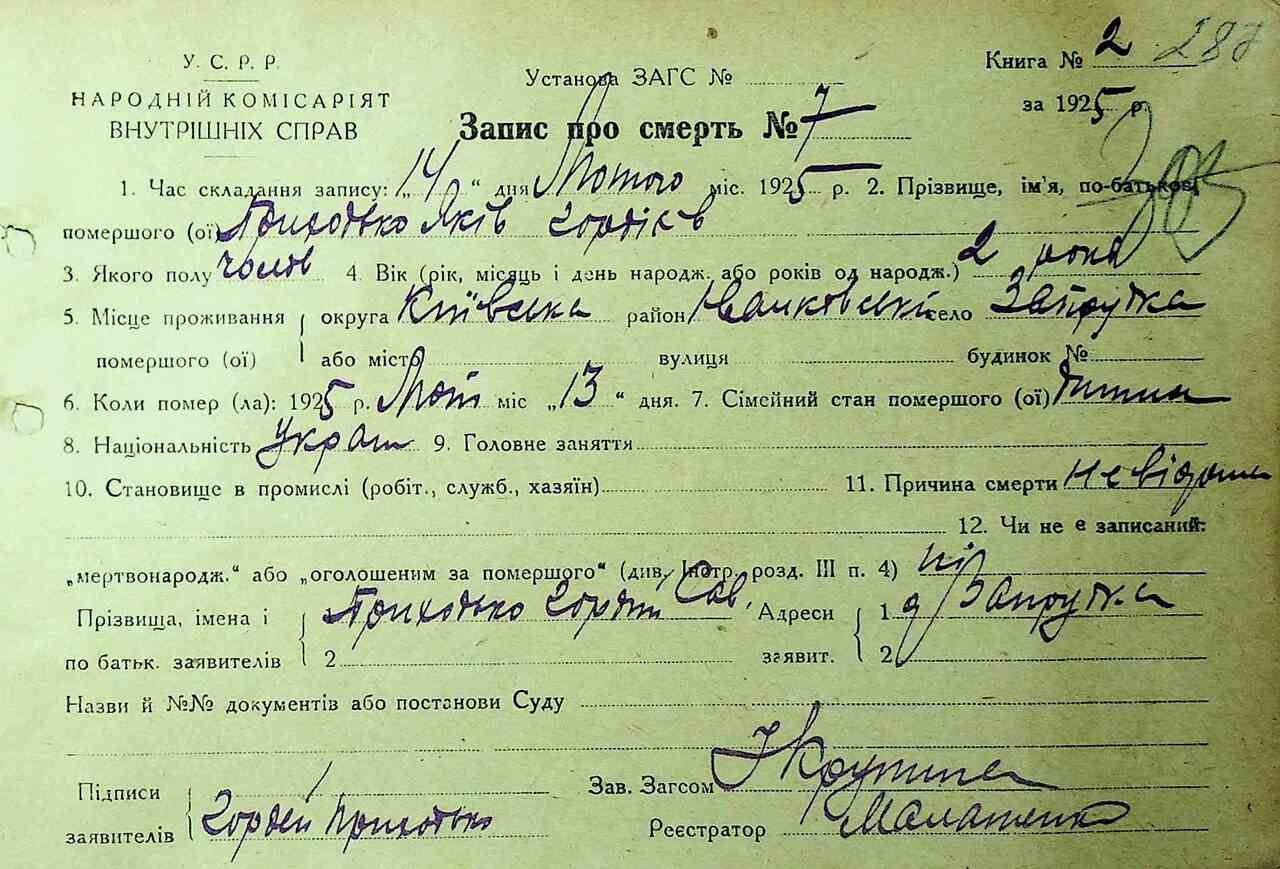 У. С. Р. Р.
НАРОДНІЙ КОМІСАРІЯТ
ВНУТРІШНІХ СПРАВ
Установа ЗАГС №
Книга № 2
за 1925 р.
Запис про смерть № 7
1. Час складання запису: „14" дня Лютого міс. 1925 р. 2. Прізвище, ім'я, по-батькові
помершого (ої) Приходько Яків Гордіїв
3. Якого полу чолов 4. Вік (рік, місяць і день народж. або років од народж.) 2 роки
5. Місце проживання округа Київська район Іванковські село Запрудка
помершого (ої) або місто вулиця будинок №
6. Коли помер (ла): 1925 р. Лют міс „13" дня. 7. Сімейний стан помершого (ої) дитина
8. Національність украт 9. Головне заняття
10. Становище в промислі (робіт., служб., хазяїн) 11. Причина смерти невідома
12. Чи не є записаний:
„мертвонародж." або „оголошеним за помершого" (див. Інстр. розд. III п. 4) ні
Прізвища, імена і Приходько Гордій Сав. Адреси 1 д Запрудка
по батьк. заявителів 2 заявит. 2
Назви й №№ документів або постанови Суду
Підписи
Зав. Загсом
заявителів Гордей Приходько
Реєстратор